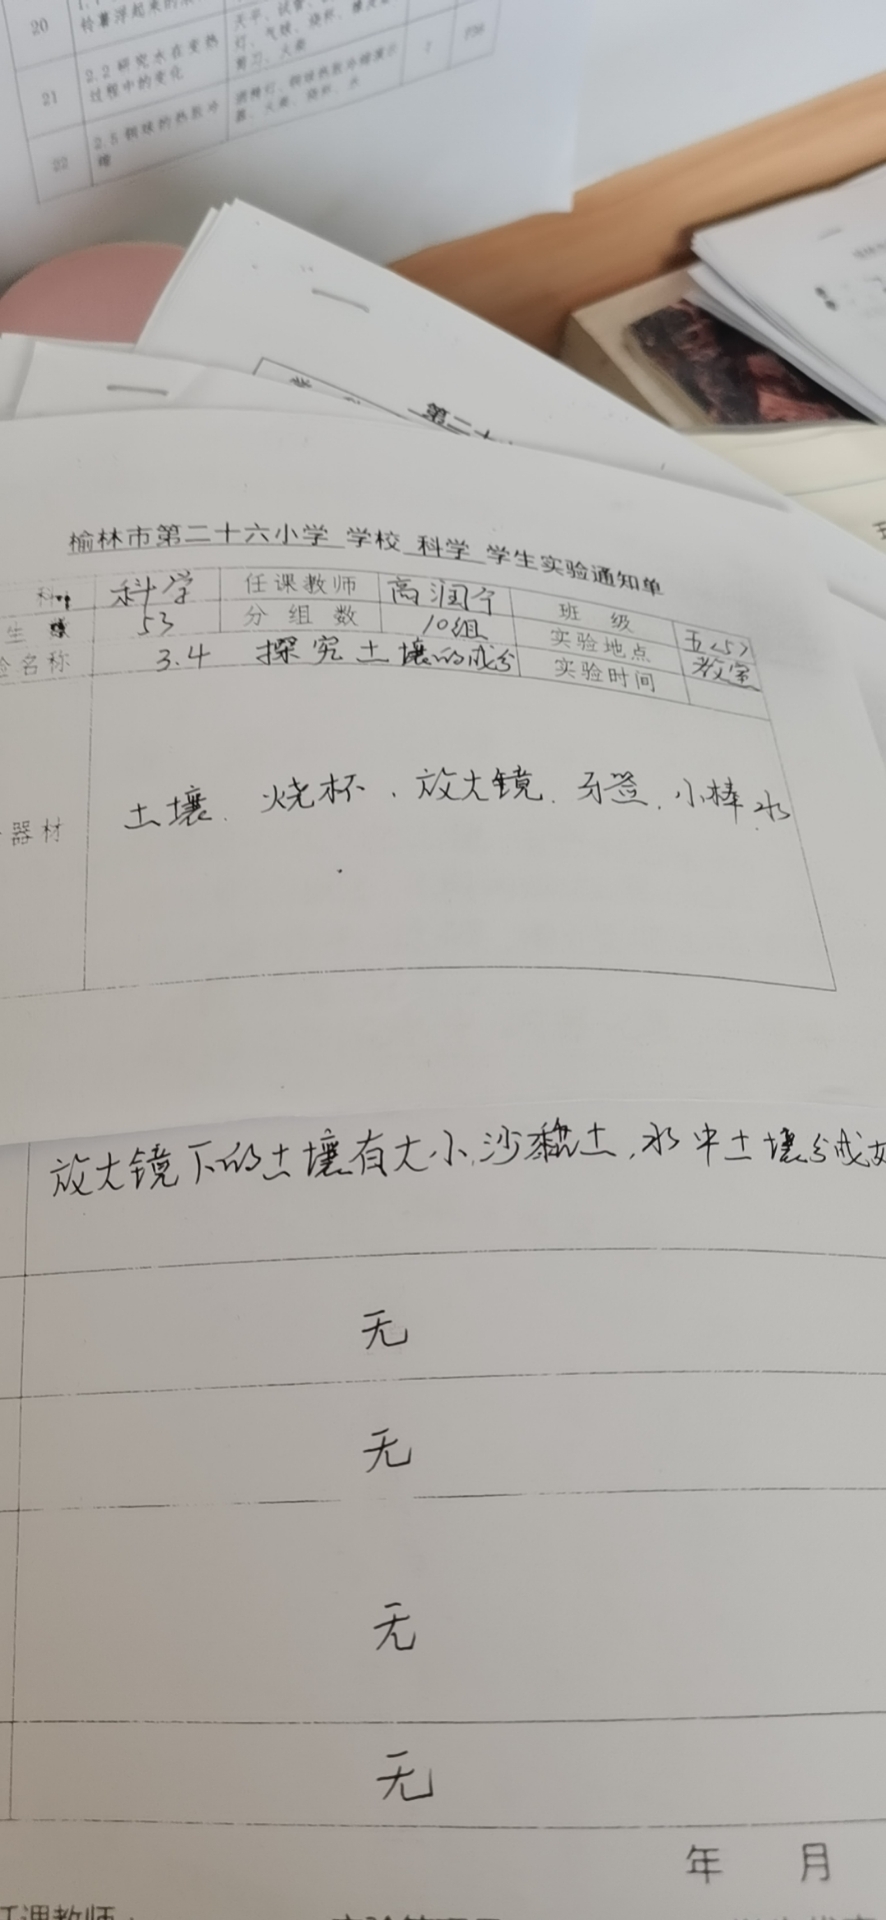 20
铃薯浮起来的
21
2.2研究水在变热
过程中的变化
灯、气球、烧杯、
剪刀、火柴
22
2.5钢球的热胀冷
缩
酒精灯、钢球热胀冷缩演示
器、火柴、烧杯、水
第二十
榆林市第二十六小学 学校 科学 学生实验通知单
科 科学 任课教师 高润宁 班 级 五<5>
生 53 分 组 数 10组 实验地点 教室
验名称 3.4 探究土壤的成分 实验时间
器材 土壤、烧杯、放大镜、牙签、小棒 水
放大镜下的土壤有大小,沙黏土,水中土壤分成
无
无
无
无
年 月
任课教师: